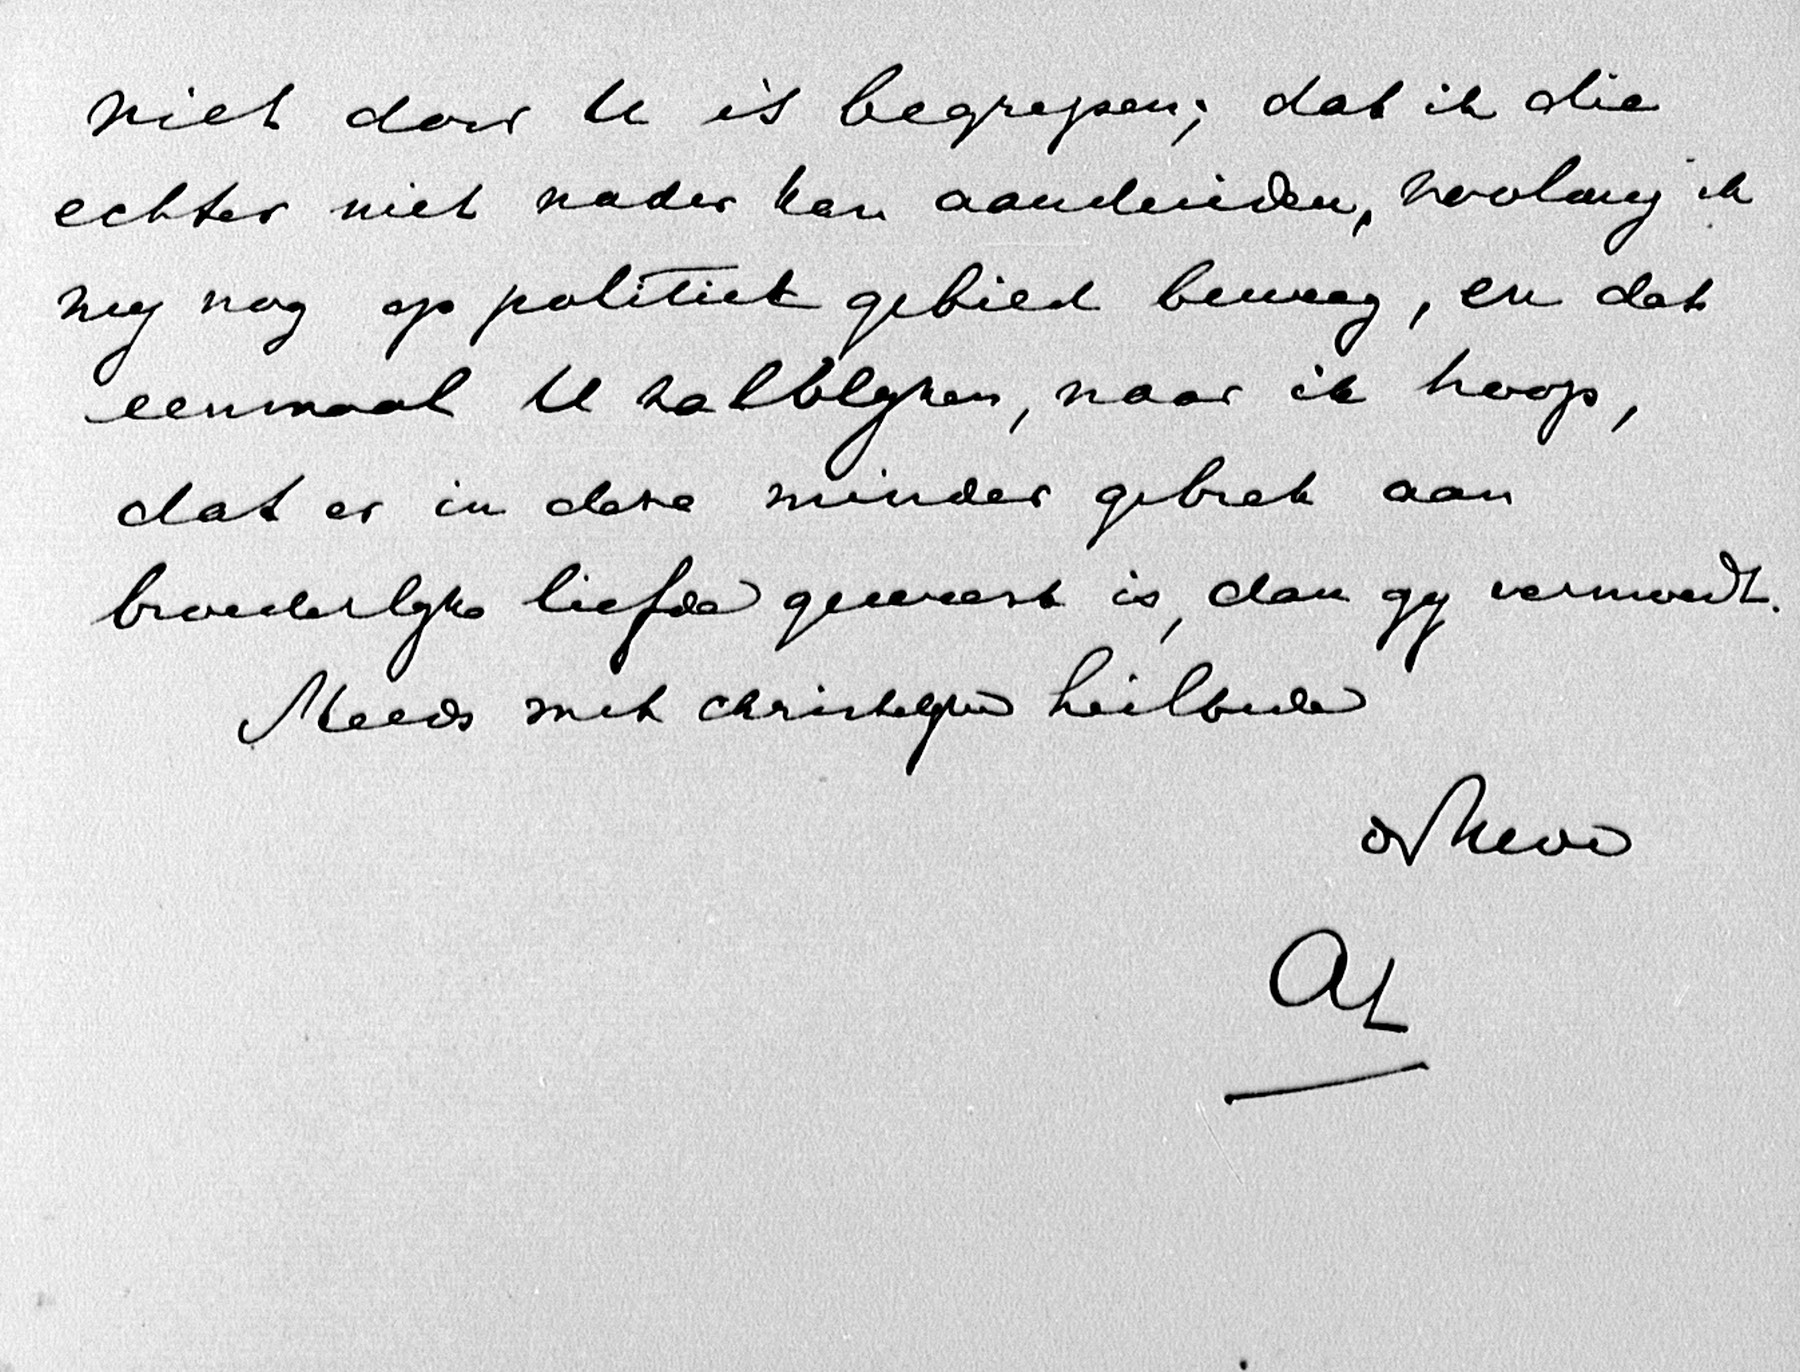 niet door U is begrepen; dat ik die
echter niet nader kan aanduiden, zoolang ik
my nog op politiek gebied beweeg, en dat
eenmaal U zal blyken, naar ik hoop,
dat er in deze minder gebrek aan
broederlyke liefde geweest is, dan gy vermoedt.
Steeds met christelyke heilbede